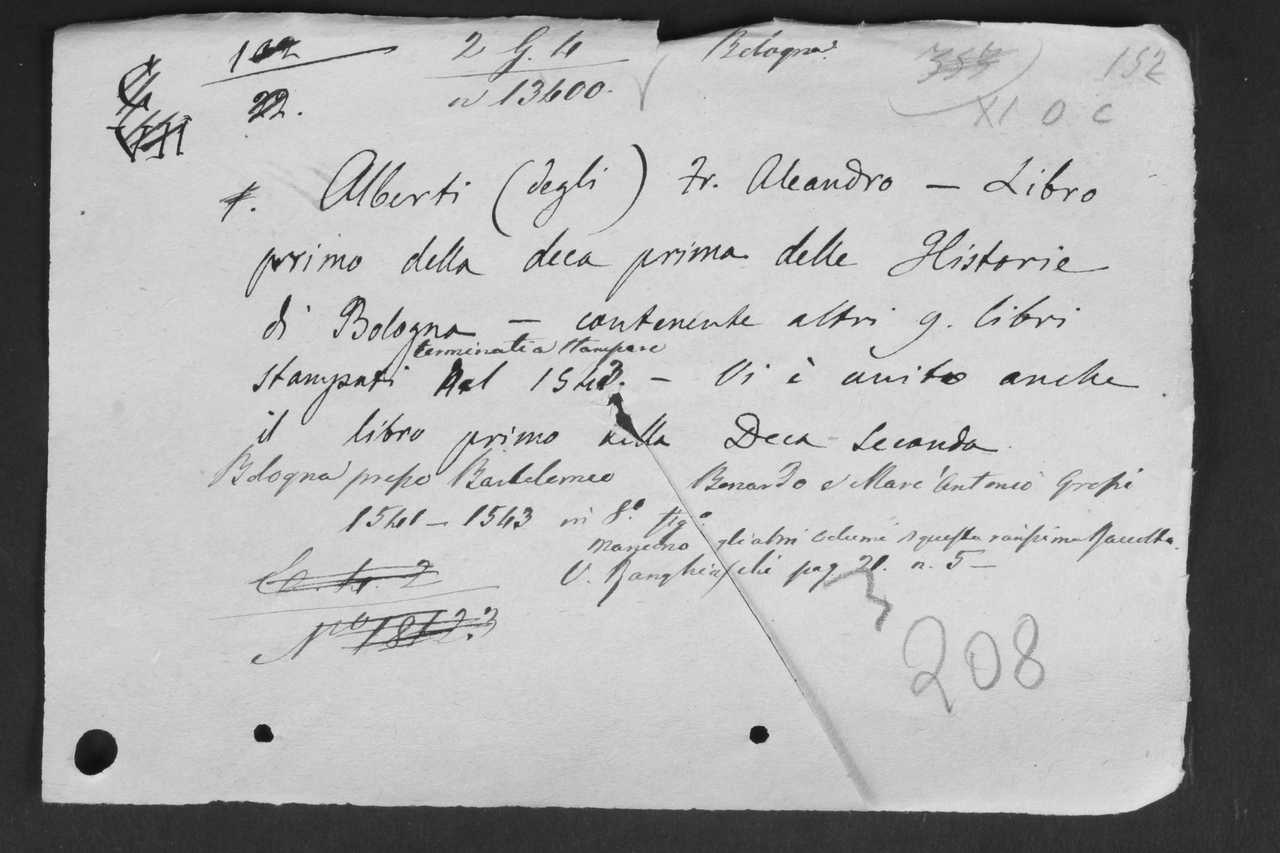 102 2 G. 4 Bologna 152
22. n 13600. XI O C
Alberti (degli) Fr. Aleandro — Libro
primo della deca prima delle Historie
di Bologna — contenente altri 9. libri
terminati a stampare
stampati nel 1543. — Vi è unito anche
il libro primo della Deca Seconda
Bologna presso Bartolomeo Bonardo e Marc'Antonio Grossi
1541 — 1543 in 8.º fig.º
mancano gli altri volumi questa rarissima Raccolta.
V. Ranghiaschi pag 21. n. 5 —
Nº 1812.3
208